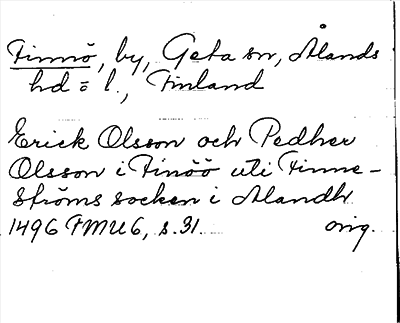 Finnö, by, Geta sn, Ålands
hd o l., Finland
Erick Olsson och Pedher
Olsson i Finöö uti Finne-
ströms socken i Alandh
1496 FMU 6, s. 31. orig.